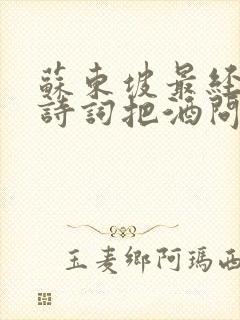 蘇東坡最経
詩詞把酒問
玉麦鄉阿瑪西